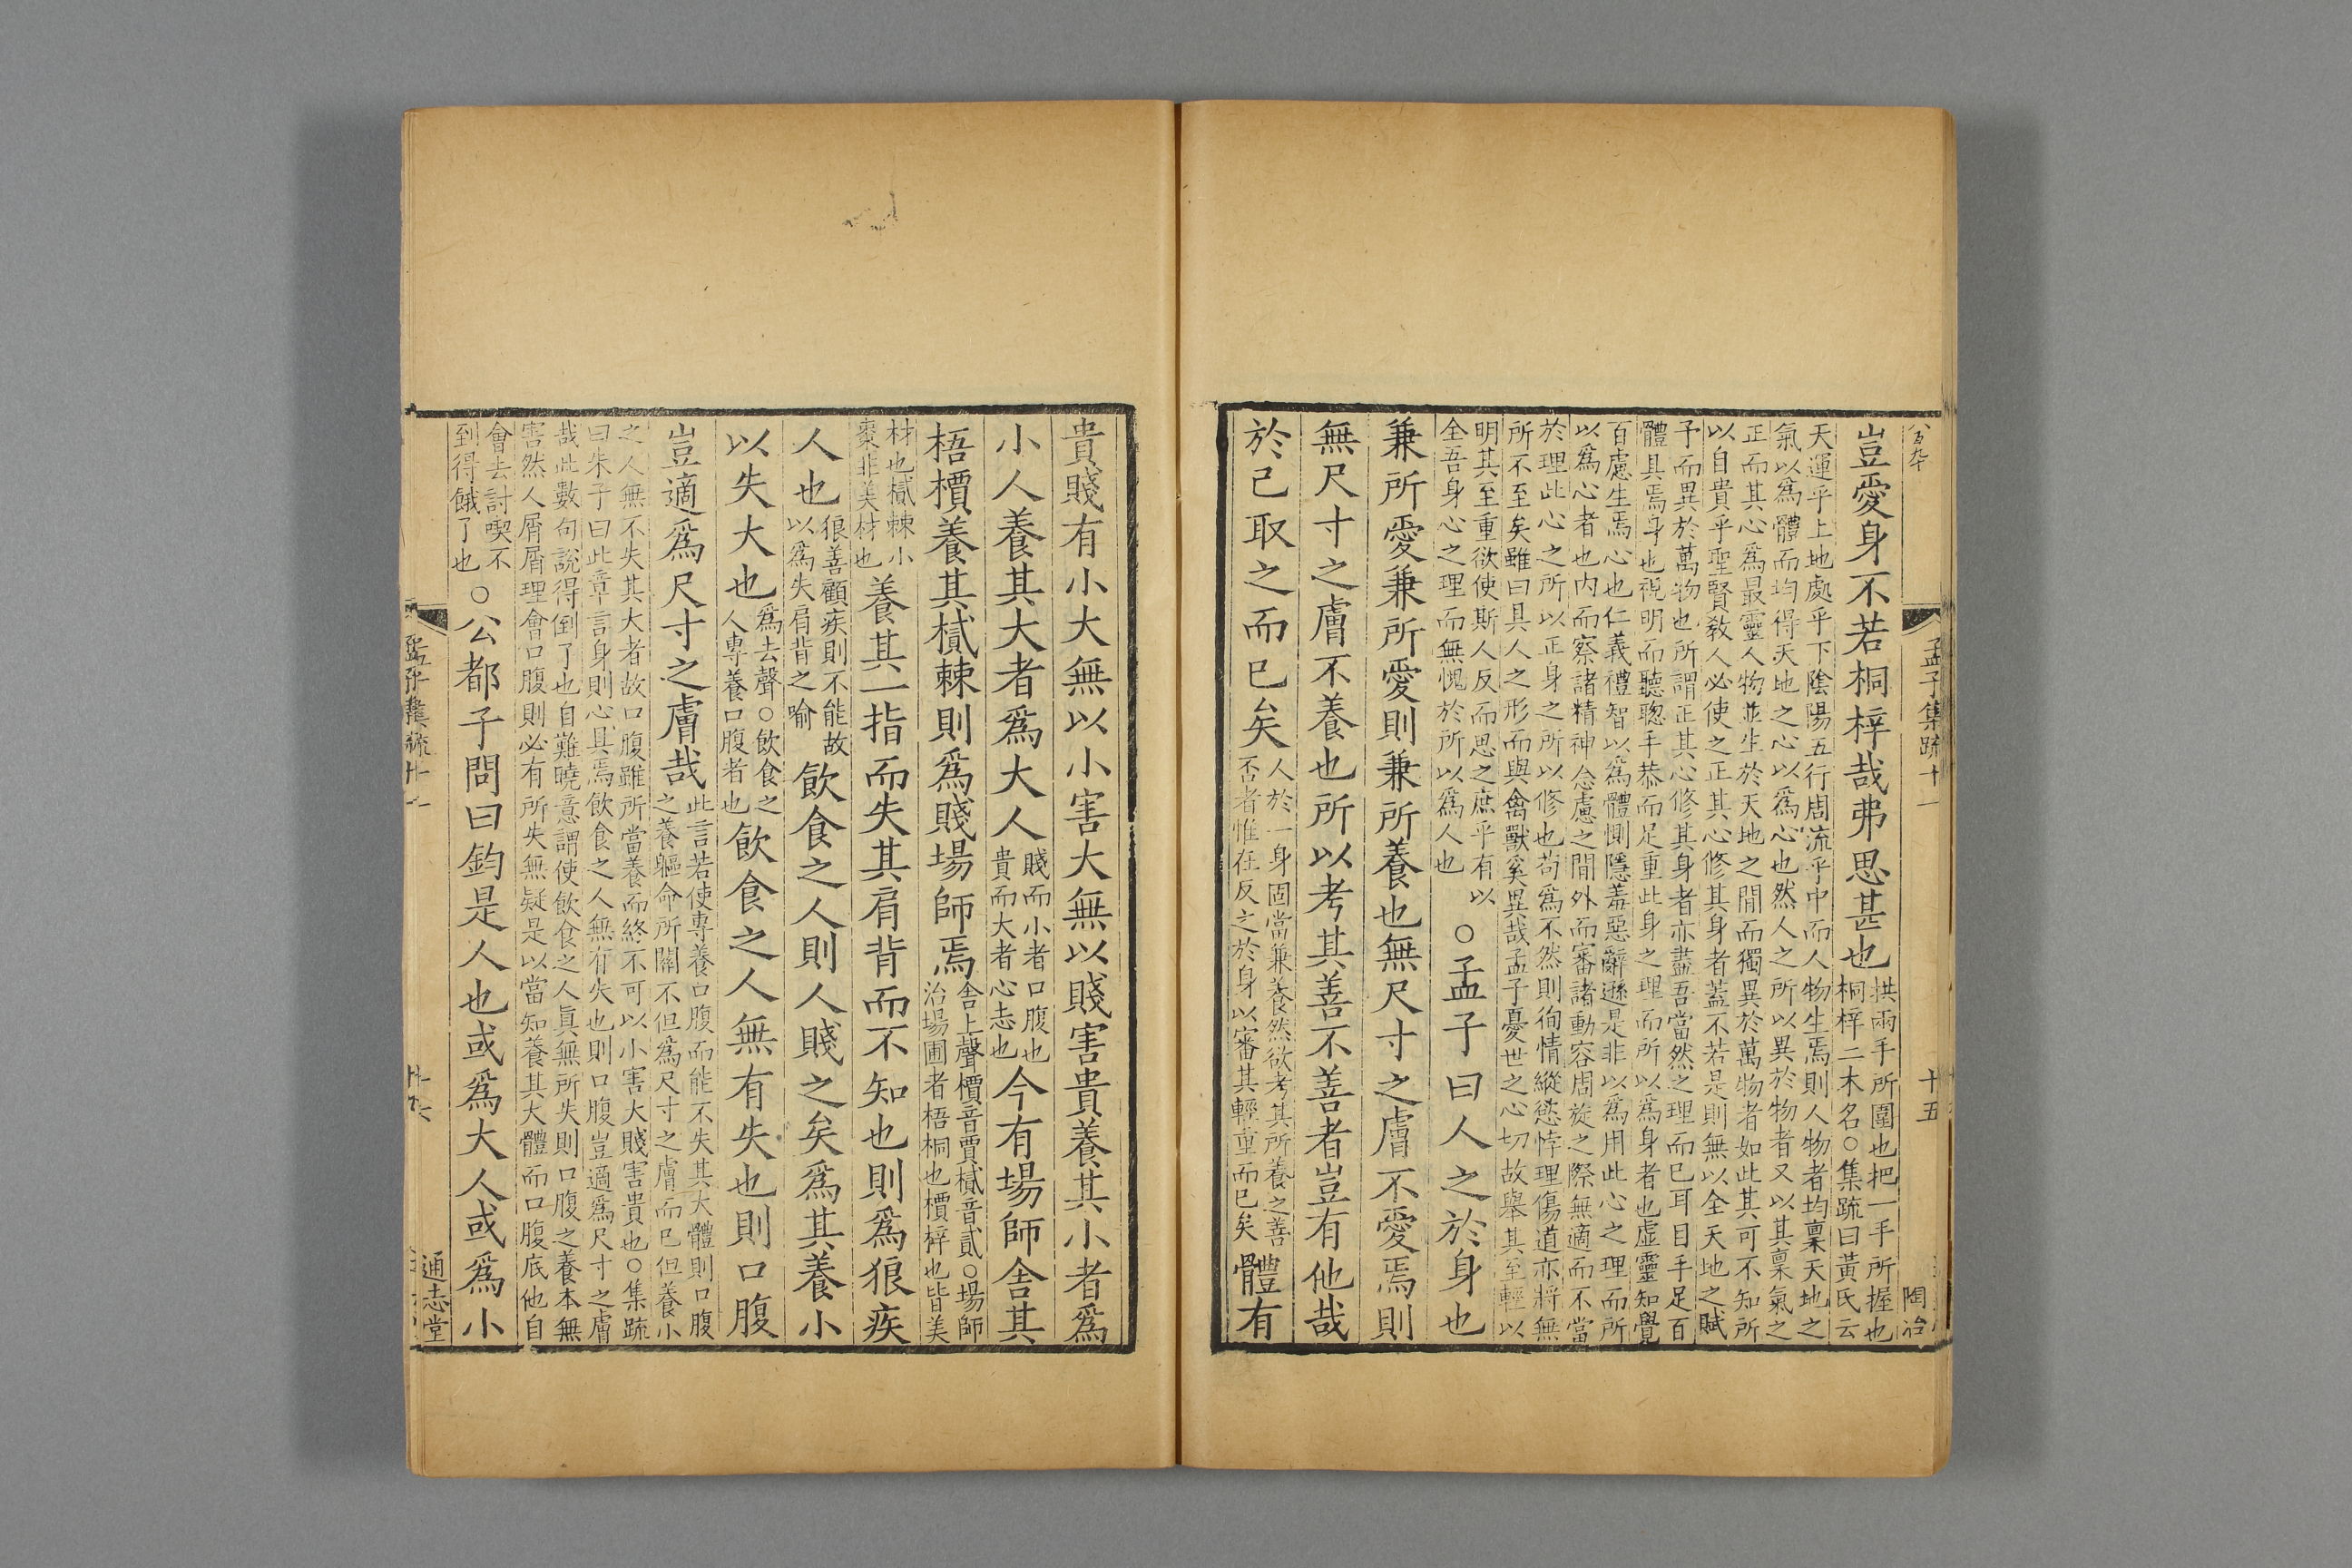 孟子集疏十一
十五
陶冶
豈愛身不若桐梓哉弗思甚也
拱兩手所圍也把一手所握也
桐梓二木名○集疏曰黃氏云
天運乎上地處乎下陰陽五行周流乎中而人物生焉則人物者均稟天地之
氣以爲體而均得天地之心以爲心也然人之所以異於物者又以其稟氣之
正而其心爲最靈人物並生於天地之間而獨異於萬物者如此其可不知所
以自貴乎聖賢敎人必使之正其心修其身者蓋不若是則無以全天地之賦
予而異於萬物也所謂正其心修其身者亦盡吾當然之理而已耳目手足百
體具焉身也視明而聽聰手恭而足重此身之理而所以爲身者也虛靈知覺
百慮生焉心也仁義禮智以爲體惻隱羞惡辭遜是非以爲用此心之理而所
以爲心者也內而察諸精神念慮之間外而審諸動容周旋之際無適而不當
於理此心之所以正身之所以修也苟爲不然則徇情縱慾悖理傷道亦將無
所不至矣雖曰具人之形而與禽獸奚異哉孟子憂世之心切故舉其至輕以
明其至重欲使斯人反而思之庶乎有以
全吾身心之理而無愧於所以爲人也
○孟子曰人之於身也
兼所愛兼所愛則兼所養也無尺寸之膚不愛焉則
無尺寸之膚不養也所以考其善不善者豈有他哉
於己取之而已矣
人於一身固當兼養然欲考其所養之善
否者惟在反之於身以審其輕重而已矣
體有
貴賤有小大無以小害大無以賤害貴養其小者爲
小人養其大者爲大人
賤而小者口腹也
貴而大者心志也
今有場師舍其
梧檟養其樲棘則爲賤場師焉
舍上聲檟音賈樲音貳○場師
治場圃者梧桐也檟梓也皆美
材也樲棘小
棗非美材也
養其一指而失其肩背而不知也則爲狼疾
人也
狼善顧疾則不能故
以爲失肩背之喻
飲食之人則人賤之矣爲其養小
以失大也
爲去聲○飲食之
人專養口腹者也
飲食之人無有失也則口腹
豈適爲尺寸之膚哉
此言若使專養口腹而能不失其大體則口腹
之養軀命所關不但爲尺寸之膚而已但養小
之人無不失其大者故口腹雖所當養而終不可以小害大賤害貴也○集疏
曰朱子曰此章言身則心具焉飲食之人無有失也則口腹豈適爲尺寸之膚
哉此數句說得倒了也自難曉意謂使飲食之人眞無所失則口腹之養本無
害然人屑屑理會口腹則必有所失無疑是以當知養其大體而口腹底他自
會去討喫不
到得餓了也
○公都子問曰鈞是人也或爲大人或爲小
通志堂